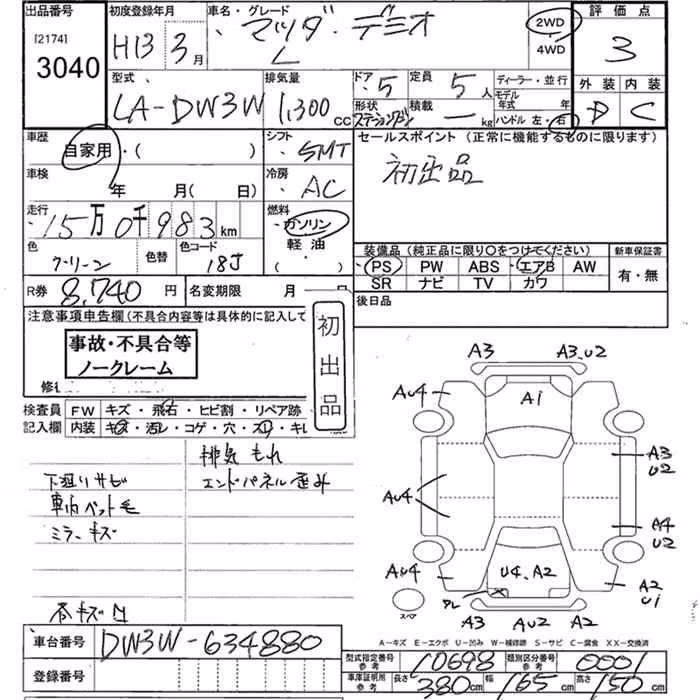 出品番号 [2174] 3040
初度登録年月 H13 3月
車名・グレード マツダ・デミオ L
2WD・4WD
評価点 3
外装 D 内装 C
型式 LA-DW3W
排気量 1,300 CC
ドア・5
形状 ステーションワゴン
定員 5人
積載 — kg
ディーラー・並行
モデル年式 年
ハンドル 左・右
車歴 自家用・( )
シフト 5MT
セールスポイント (正常に機能するものに限ります)
初出品
車検 年 月( 日)
冷房 AC
走行 15万0千983km
燃料 ガソリン 軽油・( )
色 グリーン 色替 色コード 18J
装備品 (純正品に限り○をつけてください) 新車保証書
PS PW ABS エアB AW 有・無
SR ナビ TV カワ
R券 8,740円 名変期限 月 日
後日品
注意事項申告欄(不具合内容等は具体的に記入して
事故・不具合等
ノークレーム
初出品
検査員 FW キズ・飛石・ヒビ割・リペア跡
記入欄 内装 キズ・汚レ・コゲ・穴・スリ・キレ
排気もれ
下廻りサビ エンドパネル歪み
車内ペット毛
ミラーキズ
各キズ凹
A3 A3.U2
AU4 A1
A3 U2
AU4
A4 U2
AU4 U4.A2 A2 U1
スペア A3 AU2 A2
A-キズ E-エクボ U-凹み W-補修跡 S-サビ C-腐食 XX-交換済
車台番号 DW3W-634880
型式指定番号 参考 10698 類別区分番号 参考 0001
登録番号
車庫証明用 参考 長さ 380cm 幅 165cm 高さ 150cm